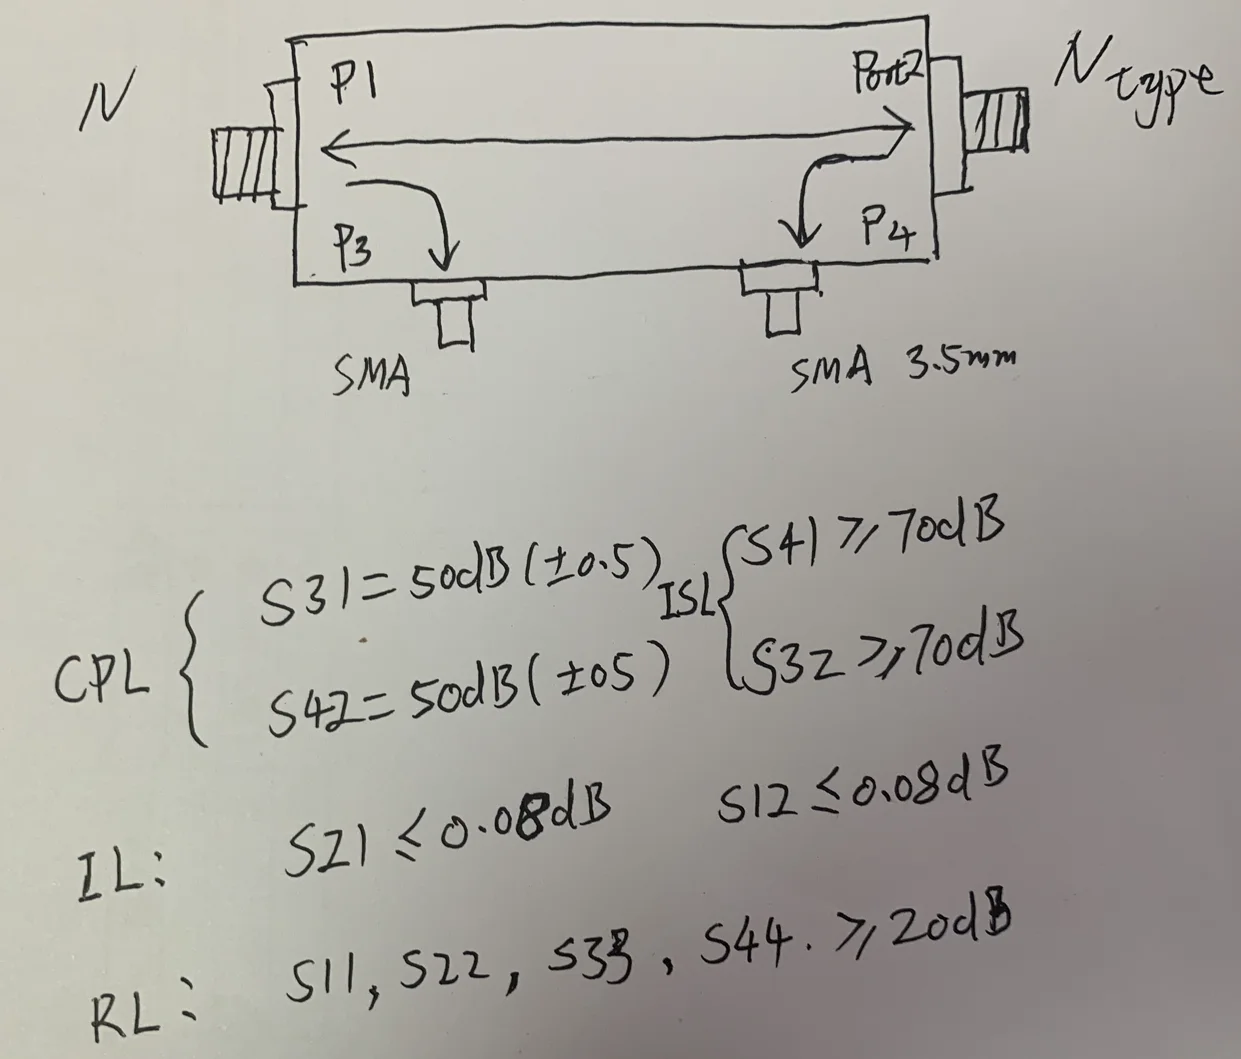 N
P1
Port2
N type
P3
P4
SMA
SMA 3.5mm
CPL { S31 = 50dB (±0.5)
S42 = 50dB (±05)
ISL { S41 ≥ 70dB
S32 ≥ 70dB
IL: S21 ≤ 0.08dB S12 ≤ 0.08dB
RL: S11, S22, S33, S44. ≥ 20dB